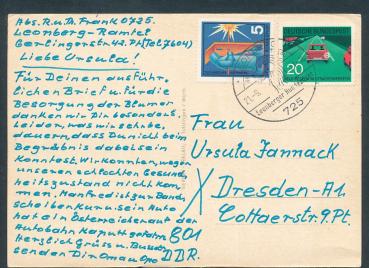 Abs. R.u.M. Frank 0725.
Leonberg-Ramtel
Gerlingerstr 42. Pt (Tel 7604)
Liebe Ursula!
Für Deinen ausführ,
lichen Brief u. für die
Besorgung der Blumen
danken wir Dir besonders.
Leider, was wir sehr be,
dauern, dass Du nicht beim
Begräbnis dabei sein
konntest. Wir konnten, wegen
unseren schlechten Gesund,
heitszustand nicht kom,
men. Manfred ist zur Band,
scheiben kur u. sein Auto
hat ein Österreicher auf der
Autobahn kaputt gefahren
Herzlich Grüss u. Bussen
senden Dir Oma u Opa
5
DEUTSCHE BUNDESPOST
20
21.-5.
Leonberger Hun
725
Frau
Ursula Jannack
X Dresden-A1.
Cottaerstr. 9. Pt.
801
DDR.